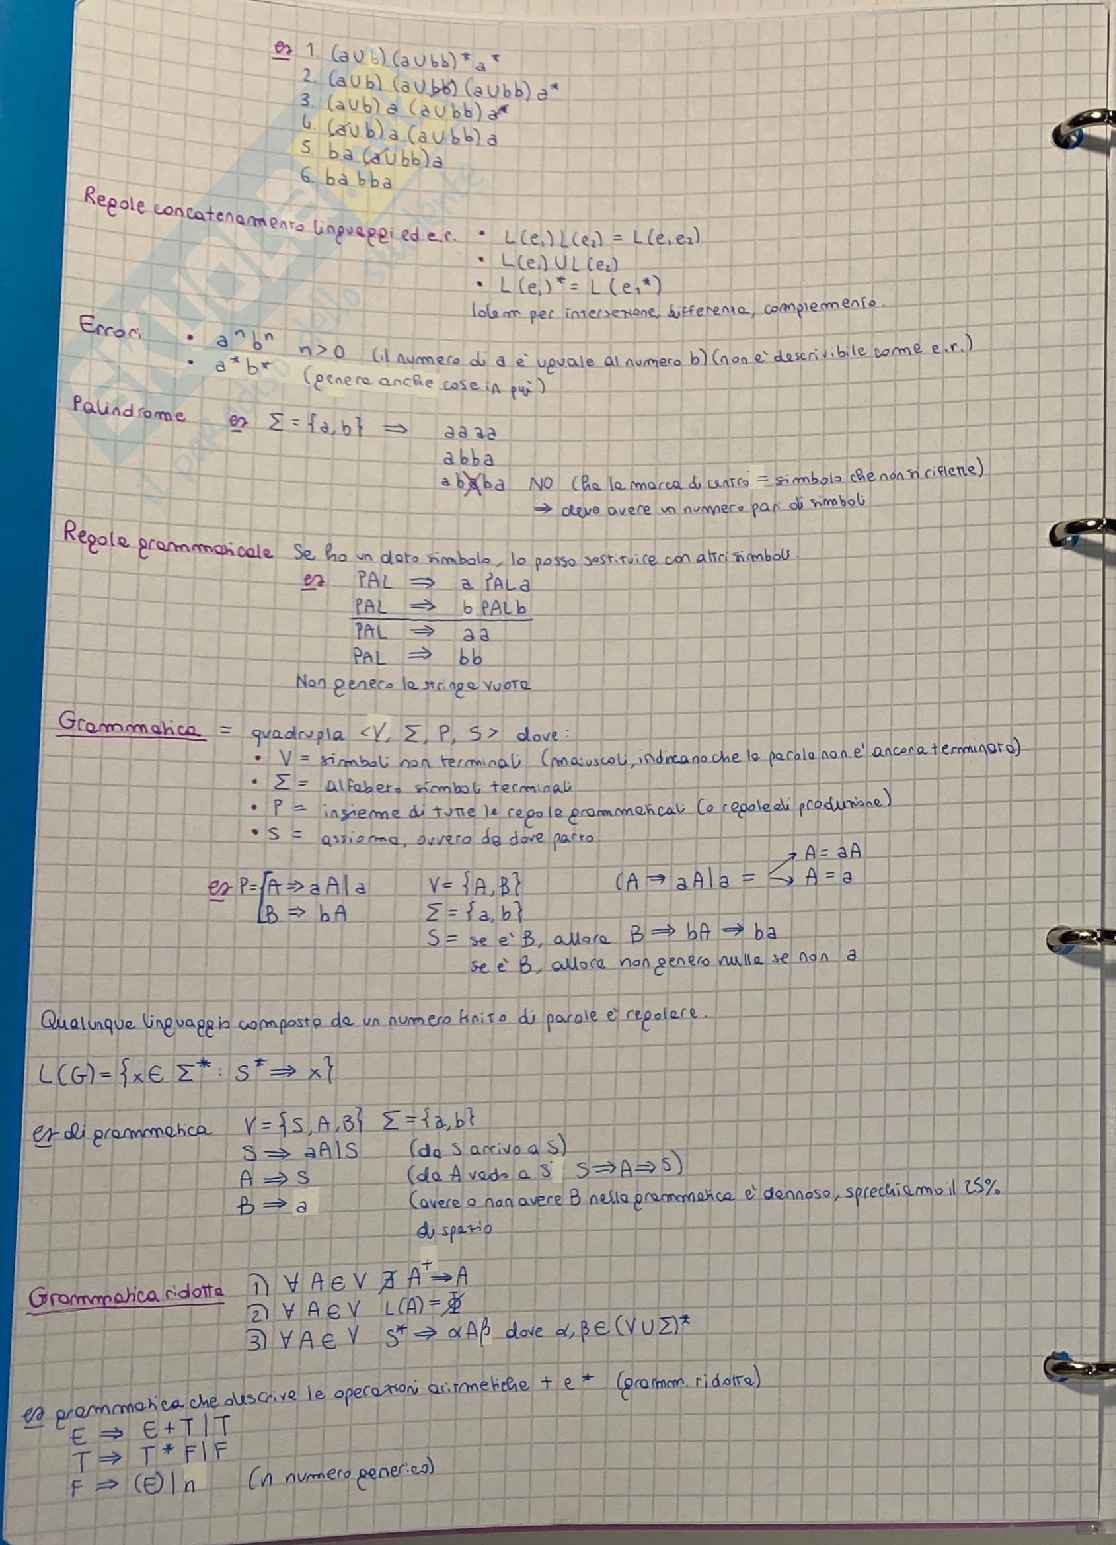 es 1. (a∪b)(a∪bb)* a*
2. (a∪b) (a∪bb) (a∪bb) a*
3. (a∪b) a (a∪bb) a*
4. (a∪b) a (a∪bb) a
5. ba (a∪bb) a
6. babba
Regole concatenamento linguaggi ed e.r. • L(e₁) L(e₂) = L(e₁e₂)
• L(e₁) ∪ L(e₂)
• L(e₁)* = L(e₁*)
Idem per intersezione, differenza, complemento.
Errori • aⁿbⁿ n>0 (il numero di a è uguale al numero b) (non è descrivibile come e.r.)
• a*b* (genera anche cose in più)
Palindrome es Σ = {a,b} ⇒ aaaa
abba
ababa NO (ha la marca di centro = simbolo che non si riflette)
→ devo avere un numero pari di simboli
Regole grammaticale Se ho un dato simbolo, lo posso sostituire con altri simboli.
es PAL ⇒ a PAL a
PAL ⇒ b PAL b
PAL ⇒ aa
PAL ⇒ bb
Non genero la stringa vuota
Grammatica = quadrupla <V, Σ, P, S> dove:
• V = simboli non terminali (maiuscoli, indicano che la parola non è ancora terminata)
• Σ = alfabeto simboli terminali
• P = insieme di tutte le regole grammaticali (o regole di produzione)
• S = assioma, ovvero da dove parto
es P = { A ⇒ aA|a V = {A,B} (A → aA|a = → A = aA
B ⇒ bA Σ = {a,b} → A = a
S = se è B, allora B ⇒ bA → ba
se è B, allora non genero nulla se non a
Qualunque linguaggio composto da un numero finito di parole è regolare.
L(G) = {x ∈ Σ* : S* ⇒ x}
es di grammatica V = {S, A, B} Σ = {a,b}
S ⇒ aA|S (da S arrivo a S)
A ⇒ S (da A vado a S S⇒A⇒S)
B ⇒ a (avere o non avere B nella grammatica è dannoso, sprechiamo il 25%
di spazio
Grammatica ridotta 1) ∀ A ∈ V ∄ A⁺⇒A
2) ∀ A ∈ V L(A) = Φ
3) ∀ A ∈ V S* ⇒ αAβ dove α,β ∈ (V∪Σ)*
es grammatica che descrive le operazioni aritmetiche + e * (gramm. ridotta)
E ⇒ E+T|T
T ⇒ T*F|F
F ⇒ (E)|n (n numero generico)